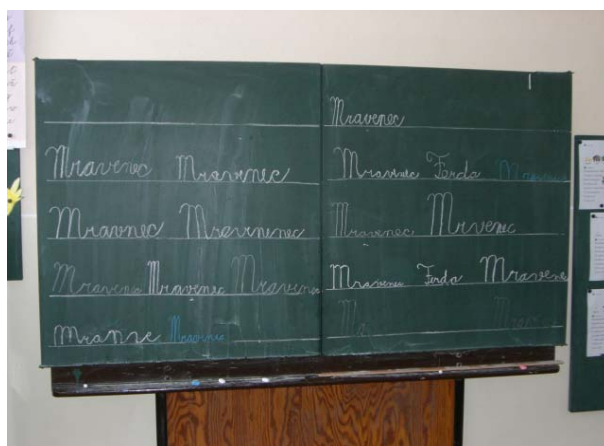 Mravenec
Mravenec Mravenec
Mravnec Mravnenec
Mravenec Mravenec Mravenec
Mranne Mravenec
Mravenec Ferda Mravenec
Mravenec Mrvenec
Mravenec Ferda Mravenec